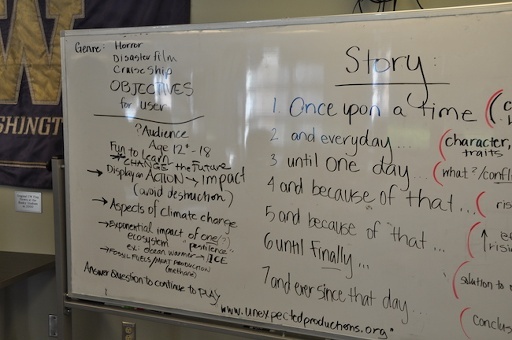 W
SHINGT
Genre: Horror
Disaster Film
Cruise Ship
OBJECTIVES
for user
?Audience
Age 12 - 18
Fun to learn
CHANGE the Future
→ Display an ACTION → Impact
(avoid destruction)
→ Aspects of climate change
→ Exponential impact of one(?)
ecosystem "pestilence"
ex. ocean warmer → ICE
→ FOSSIL FUELS/MEAT PRODUCTION
(methane)
Answer Question to continue to play
Story:
1. Once upon a time
2 and everyday....
character,
traits
3 until one day....
what?/confl
4 and because of that...
ris
5 and because of that...
6 until finally...
solution to
7 and ever since that day...
conclus
www.unexpectedproductions.org